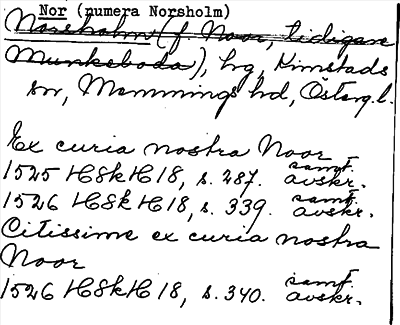 Nor (numera Norsholm)
Norsholm (f. Noor, tidigare
Munkeboda), hg, Kimstads
sn, Memmings hd, Österg. l.
Ex curia nostra Noor
1525 HSkH 18, s. 287. samt. avskr.
1526 HSkH 18, s. 339. samt. avskr.
Citissime ex curia nostra
Noor
1526 HSkH 18, s. 340. samt. avskr.